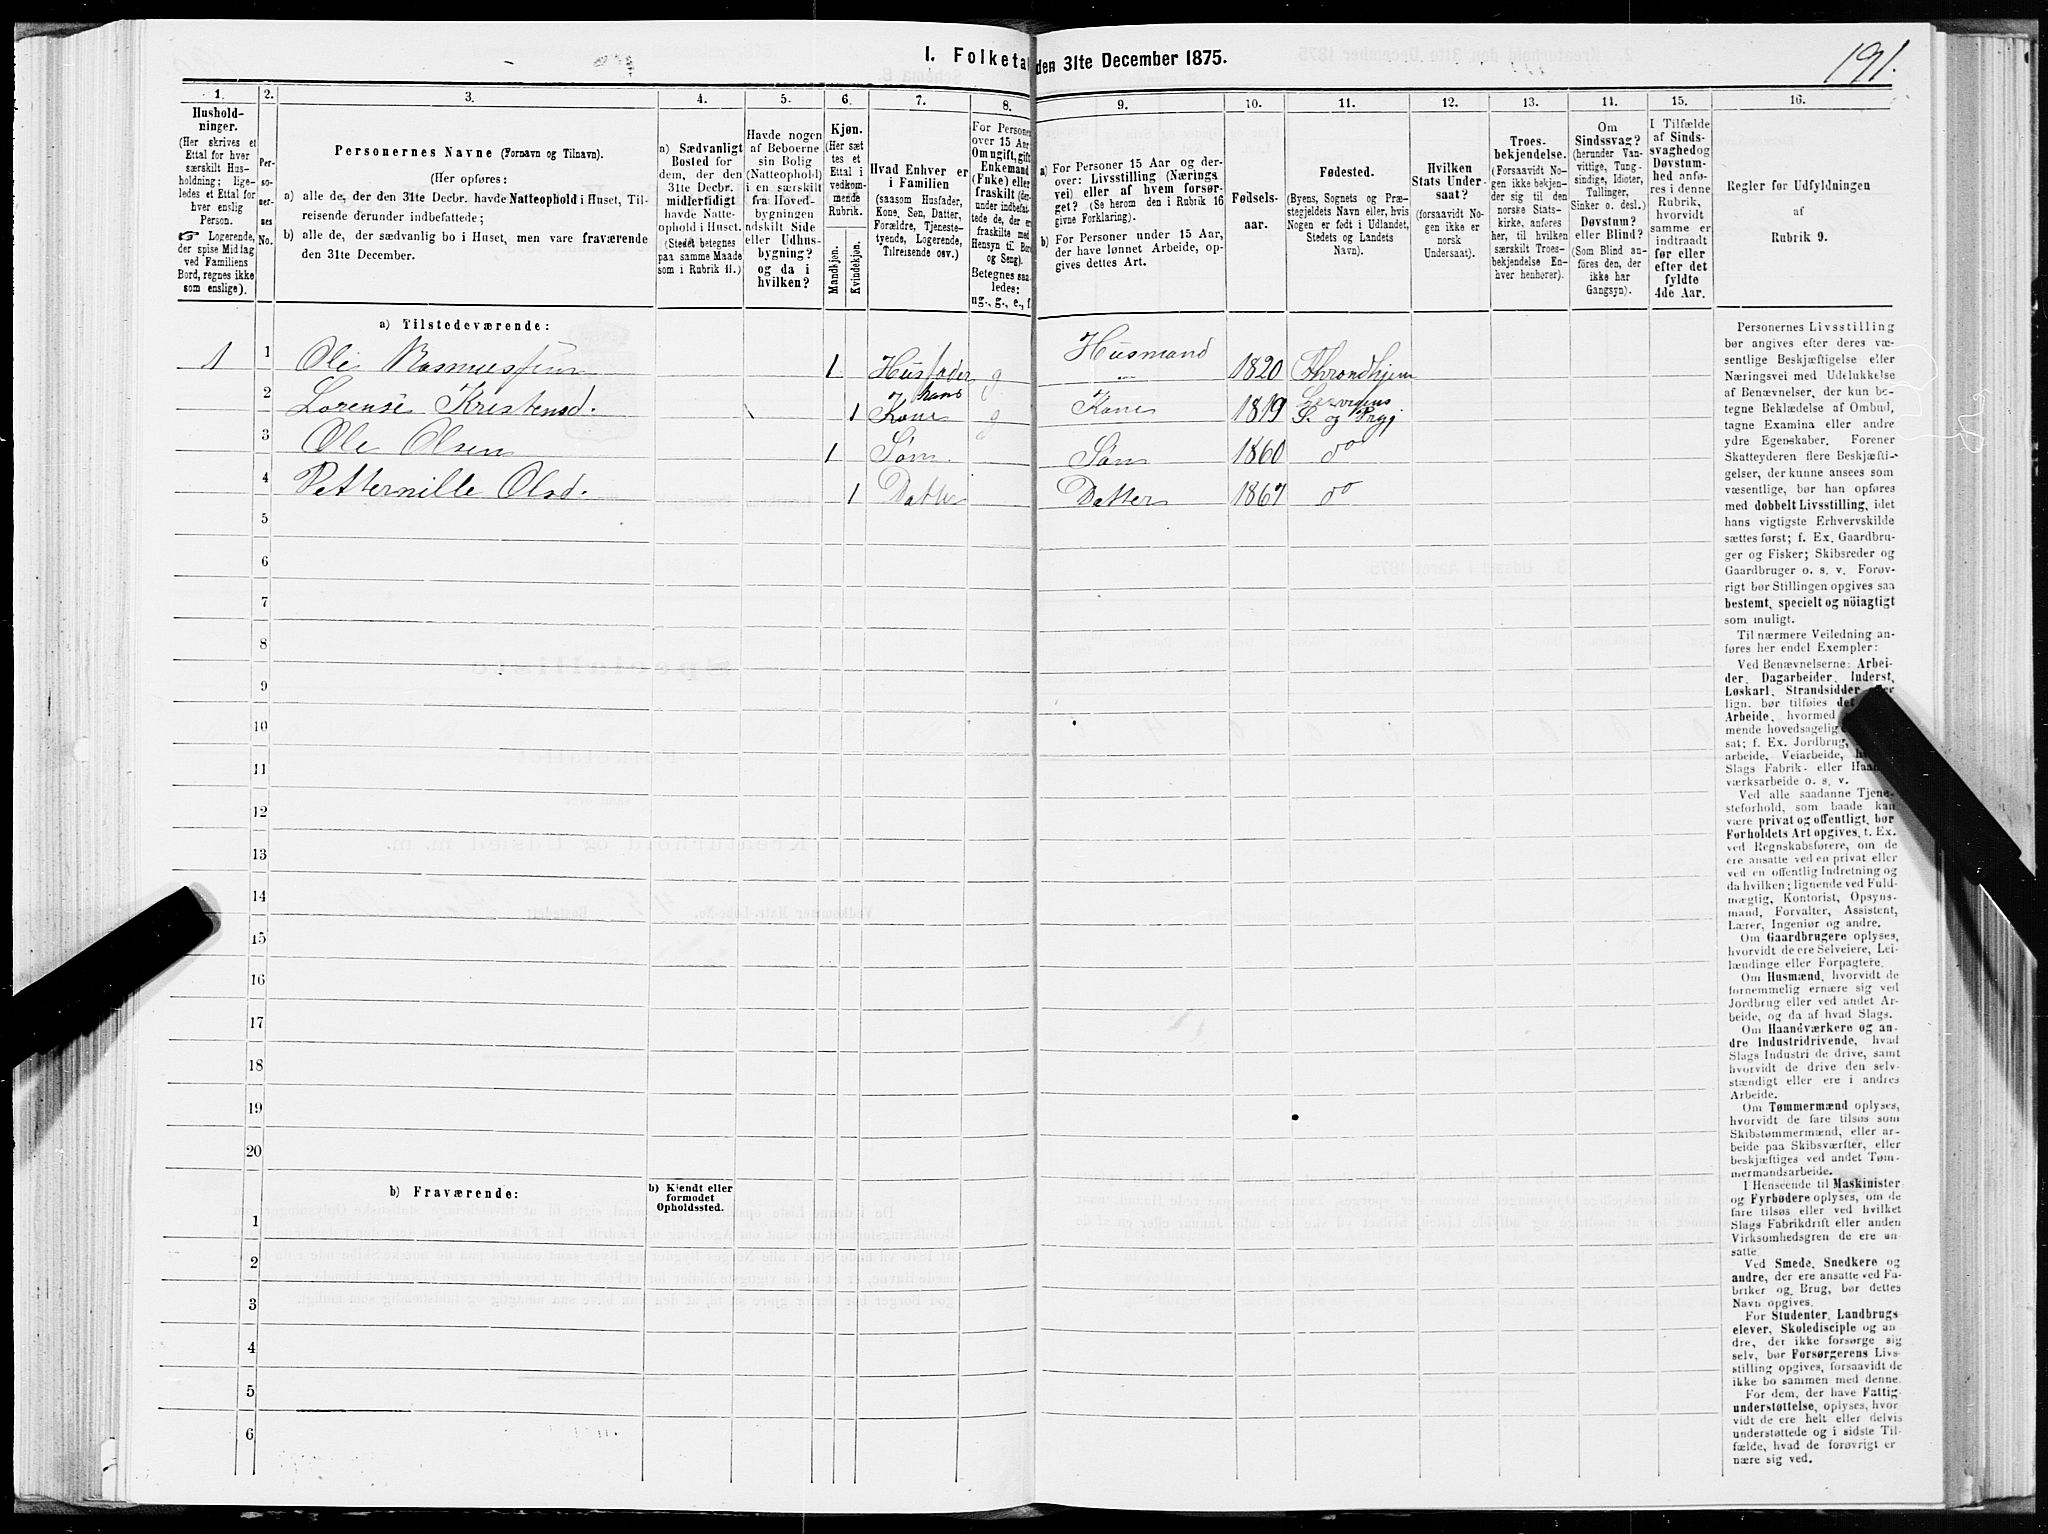 I. Folketal den 31te December 1875.
191.
1.
2.
3.
4.
5.
6.
7.
8.
9.
10.
11.
12.
13.
14.
15.
16.
Hushold-
ninger.
(Her skrives et
Ettal for hver
særskilt Hus-
holdning; lige-
ledes et Ettal for
hver enslig
Person.
☞ Logerende,
der spise Middag
ved Familiens
Bord, regnes ikke
som enslige).
Per-
so-
ner-
nes
No.
Personernes Navne (Fornavn og Tilnavn).
(Her opføres:
a) alle de, der den 31te Decbr. havde Natteophold i Huset, Til-
reisende derunder indbefattede;
b) alle de, der sædvanlig bo i Huset, men vare fraværende
den 31te December.
a) Sædvanligt
Bosted for
dem, der den
31te Decbr.
midlertidigt
havde Natte-
ophold i Huset.
(Stedet betegnes
paa samme Maade
som i Rubrik 11.)
Havde nogen
af Beboerne
sin Bolig
(Natteophold)
i en særskilt
fra Hoved-
bygningen
adskilt Side
eller Udhus-
bygning?
og da i
hvilken?
Kjøn.
(Her sæt
tes et
Ettal i
vedkom-
mende
Rubrik.
Mandkjøn.
Kvindekjøn.
Hvad Enhver er
i Familien
(saasom Husfader,
Kone, Søn, Datter,
Forældre, Tjeneste-
tyende, Logerende,
Tilreisende osv.)
For Personer
over 15 Aar
Om ugift, gift
Enkemand
(Enke) eller
fraskilt (der-
under indbefat-
tede de, der ere
fraskilte med
Hensyn til Bord
og Seng).
Betegnes saa-
ledes:
ug., g., e., f.
a) For Personer 15 Aar og der-
over: Livsstilling (Nærings
vei) eller af hvem forsør-
get? (Se herom den i Rubrik 16
givne Forklaring).
b) For Personer under 15 Aar,
der have lønnet Arbeide, op-
gives dettes Art.
Fødsels-
aar.
Fødested.
(Byens, Sognets og Præ-
stegjeldets Navn eller, hvis
Nogen er født i Udlandet,
Stedets og Landets
Navn).
Hvilken
Stats Under-
saat?
(forsaavidt No-
gen ikke er
norsk
Undersaat).
Troes-
bekjendelse.
(Forsaavidt No-
gen ikke bekjen-
der sig til den
norske Stats-
kirke, anføres
her, til hvilken
særskilt Troes-
bekjendelse En-
hver henhører).
Om
Sindssvag?
(herunder Van-
vittige, Tung-
sindige, Idioter,
Tullinger,
Sinker o. desl.)
Døvstum?
eller Blind?
(Som Blind an-
føres den, der
ikke har
Gangsyn).
I Tilfælde
af Sinds-
svaghed og
Døvstum-
hed anfø-
res i denne
Rubrik,
hvorvidt
samme er
indtraadt
før eller
efter det
fyldte
4de Aar.
Regler for Udfyldningen
af
Rubrik 9.
a) Tilstedeværende:
1 1 Ole Rasmussen 1 Husfader g Husmand 1820 Throndhjem
2 Lorense Kristensd. 1 hans Kone g Kone 1819 S. og Prgj
3 Ole Olsen 1 Søn Søn 1860 do
4 Petternille Olsd. 1 Datter Datter 1867 do
5
6
7
8
9
10
11
12
13
14
15
16
17
18
19
20
b) Fraværende:
b) Kjendt eller
formodet
Opholdssted.
1
2
3
4
5
6
Personernes Livsstilling
bør angives efter deres væ-
sentlige Beskjæftigelse eller
Næringsvei med Udelukkelse
af Benævnelser, der kun be-
tegne Beklædelse af Ombud,
tagne Examina eller andre
ydre Egenskaber. Forener
Skatteyderen flere Beskjæfti-
gelser, der kunne ansees som
væsentlige, bør han opføres
med dobbelt Livsstilling, idet
hans vigtigste Erhvervskilde
sættes først; f. Ex. Gaardbru-
ger og Fisker; Skibsreder og
Gaardbruger o. s. v. Forøv-
rigt bør Stillingen opgives saa
bestemt, specielt og nöiagtigt
som muligt.
Til nærmere Veiledning an-
føres her endel Exempler:
Ved Benævnelserne: Arbei-
der, Dagarbeider, Inderst,
Løskarl, Strandsidder eller
lign. bør tilføies det
Arbeide, hvormed
mende hovedsagelig
sat; f. Ex. Jordbrug,
arbeide, Veiarbeide,
Slags Fabrik- eller Haand-
værksarbeide o. s. v.
Ved alle saadanne Tjene-
steforhold, som baade kan
være privat og offentligt, bør
Forholdets Art opgives, t. Ex.
ved Regnskabsførere, om de
ere ansatte ved en privat eller
ved en offentlig Indretning og
da hvilken; lignende ved Fuld-
mægtig, Kontorist, Opsyns-
mand, Forvalter, Assistent,
Lærer, Ingeniør og andre.
Om Gaardbrugere oplyses,
hvorvidt de ere Selveiere, Lei-
lændinge eller Forpagtere.
Om Husmænd, hvorvidt de
fornemmelig ernære sig ved
Jordbrug eller ved andet Ar-
beide, og da af hvad Slags.
Om Haandværkere og an-
dre Industridrivende, hvad
Slags Industri de drive, samt
hvorvidt de drive den selv-
stændigt eller ere i andres
Arbeide.
Om Tømmermænd oplyses,
hvorvidt de fare tilsøs som
Skibstømmermænd, eller ar-
beide paa Skibsværfter, eller
beskjæftiges ved andet Tøm-
mermandsarbeide.
I Henseende til Maskinister
og Fyrbødere oplyses, om de
fare tilsøs eller ved hvilket
Slags Fabrikdrift eller anden
Virksomhedsgren de ere an-
satte.
Ved Smede, Snedkere og
andre, der ere ansatte ved Fa-
briker og Brug, bør dettes
Navn opgives.
For Studenter, Landbrugs-
elever, Skoledisciple og an-
dre, der ikke forsørge sig
selv, bør Forsørgerens Livs-
stilling opgives, forsaavidt de
ikke bo sammen med denne.
For dem, der have Fattig-
understøttelse, oplyses, hvor-
vidt de ere helt eller delvis
understøttede og i sidste Til-
fælde, hvad de forøvrigt er-
nære sig ved.